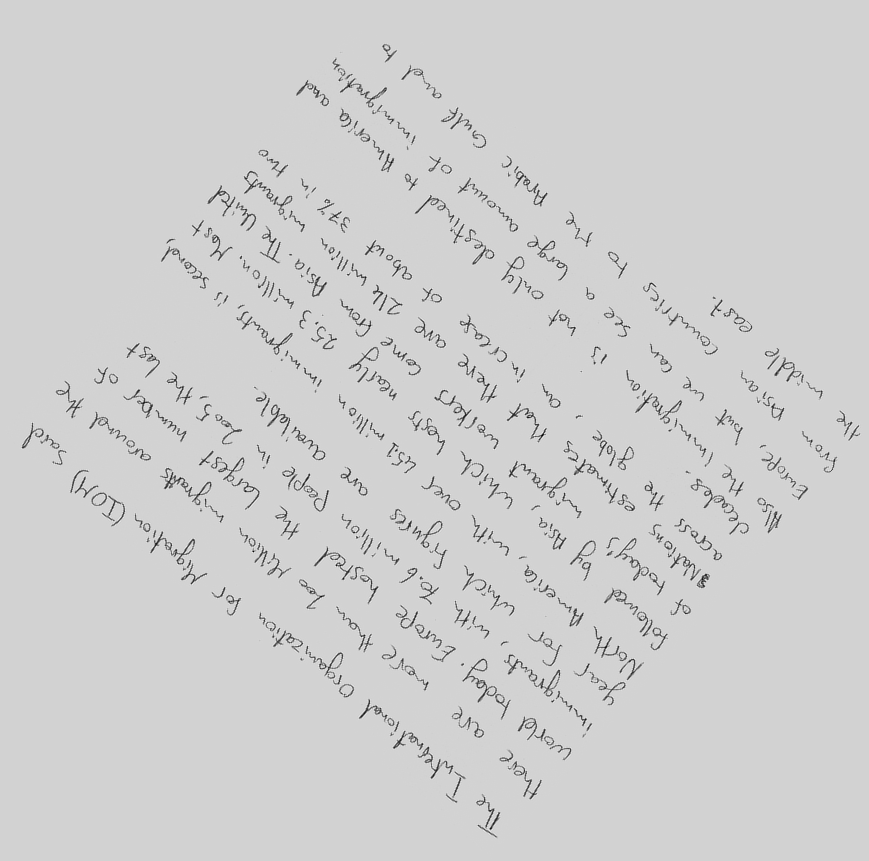 The International Organization for Migration (IOM) said
there are more than 200 Million migrants around the
world today. Europe hosted the largest number of
immigrants, with 70.6 million People in 2005, the last
year for which figures are available.
North America, with over 451 million immigrants, is second,
followed by Asia, which hosts nearly 25.3 million. Most
of today's migrant workers come from Asia. The United
Nations estimates that there are 214 million migrants
across the globe, an increase of about 37% in two
decades.
Also the immigration is not only destined to America and
Europe, but we can see a large amount of immigration
from Asian countries to the Arabic Gulf and to
the middle east.